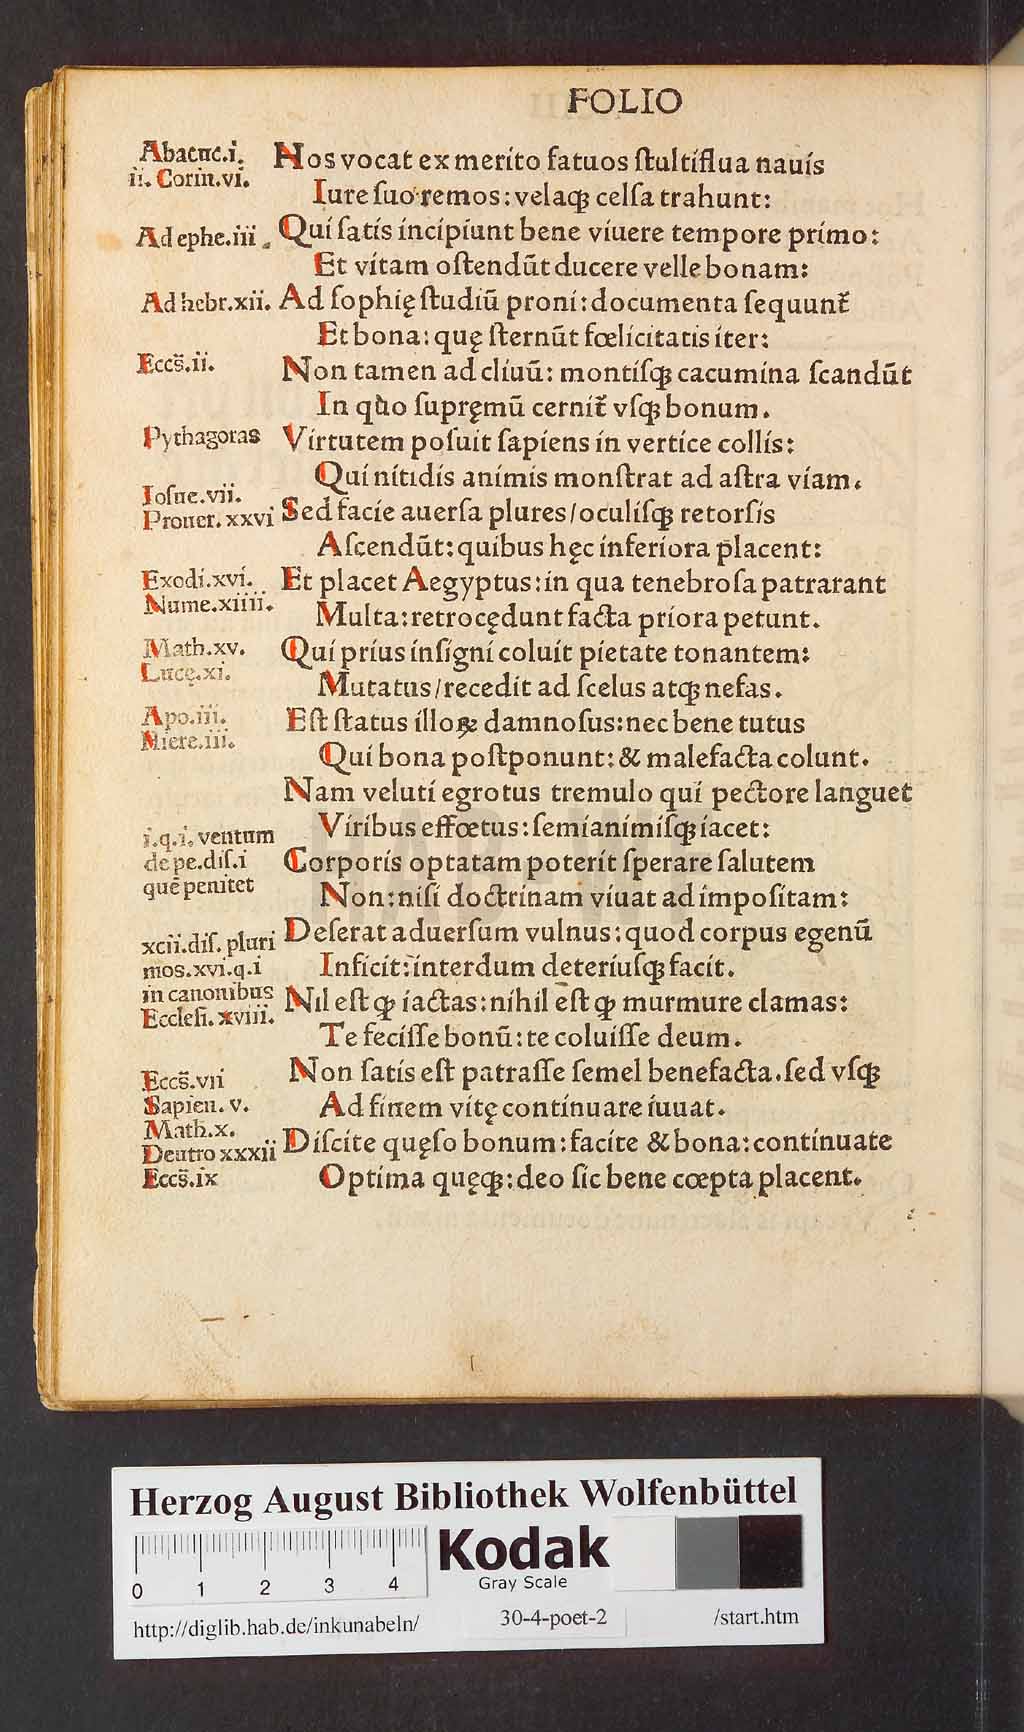 FOLIO
Abacuc.i.
ii. Corin.vi.
Ad ephe.iii.
Ad hebr.xii.
Eccs̄.ii.
Pythagoras
Iosue.vii.
Prouer. xxvi
Exodi.xvi.
Nume.xiiii.
Math.xv.
Lucę.xi.
Apo.iii.
Hiere.iii.
i.q.i. ventum
de pe.dis.i
quē penitet
xcii.dis. pluri
mos.xvi.q.i
in canonibus
Ecclesi. xviii.
Eccs̄.vii
Sapien. v.
Math.x.
Deutro xxxii
Eccs̄.ix
Nos vocat ex merito fatuos ſtultiflua nauis
Iure ſuo remos: velaqꝫ celſa trahunt:
Qui ſatis incipiunt bene viuere tempore primo:
Et vitam oſtendūt ducere velle bonam:
Ad ſophię ſtudiū proni: documenta ſequunt᷑
Et bona: quę ſternūt fœlicitatis iter:
Non tamen ad cliuū: montiſqꝫ cacumina ſcandūt
In quo ſupręmū cernit᷑ vſqꝫ bonum.
Virtutem poſuit ſapiens in vertice collis:
Qui nitidis animis monſtrat ad aſtra viam.
Sed facie auerſa plures/oculiſqꝫ retorſis
Aſcendūt: quibus hęc inferiora placent:
Et placet Aegyptus: in qua tenebroſa patrarant
Multa: retrocędunt facta priora petunt.
Qui prius inſigni coluit pietate tonantem:
Mutatus/recedit ad ſcelus atqꝫ nefas.
Eſt ſtatus illoꝝ damnoſus: nec bene tutus
Qui bona poſtponunt: & malefacta colunt.
Nam veluti egrotus tremulo qui pectore languet
Viribus effœtus: ſemianimiſqꝫ iacet:
Corporis optatam poterit ſperare ſalutem
Non: niſi doctrinam viuat ad impoſitam:
Deſerat aduerſum vulnus: quod corpus egenū
Inficit: interdum deteriuſqꝫ facit.
Nil eſt ꝙ iactas: nihil eſt ꝙ murmure clamas:
Te feciſſe bonū: te coluiſſe deum.
Non ſatis eſt patraſſe ſemel benefacta. ſed vſqꝫ
Ad finem vitę continuare iuuat.
Diſcite quęſo bonum: facite & bona: continuate
Optima quęqꝫ: deo ſic bene cœpta placent.
HAB WF
Herzog August Bibliothek Wolfenbüttel
0 1 2 3 4
Kodak
Gray Scale
http://diglib.hab.de/inkunabeln/
30-4-poet-2
/start.htm